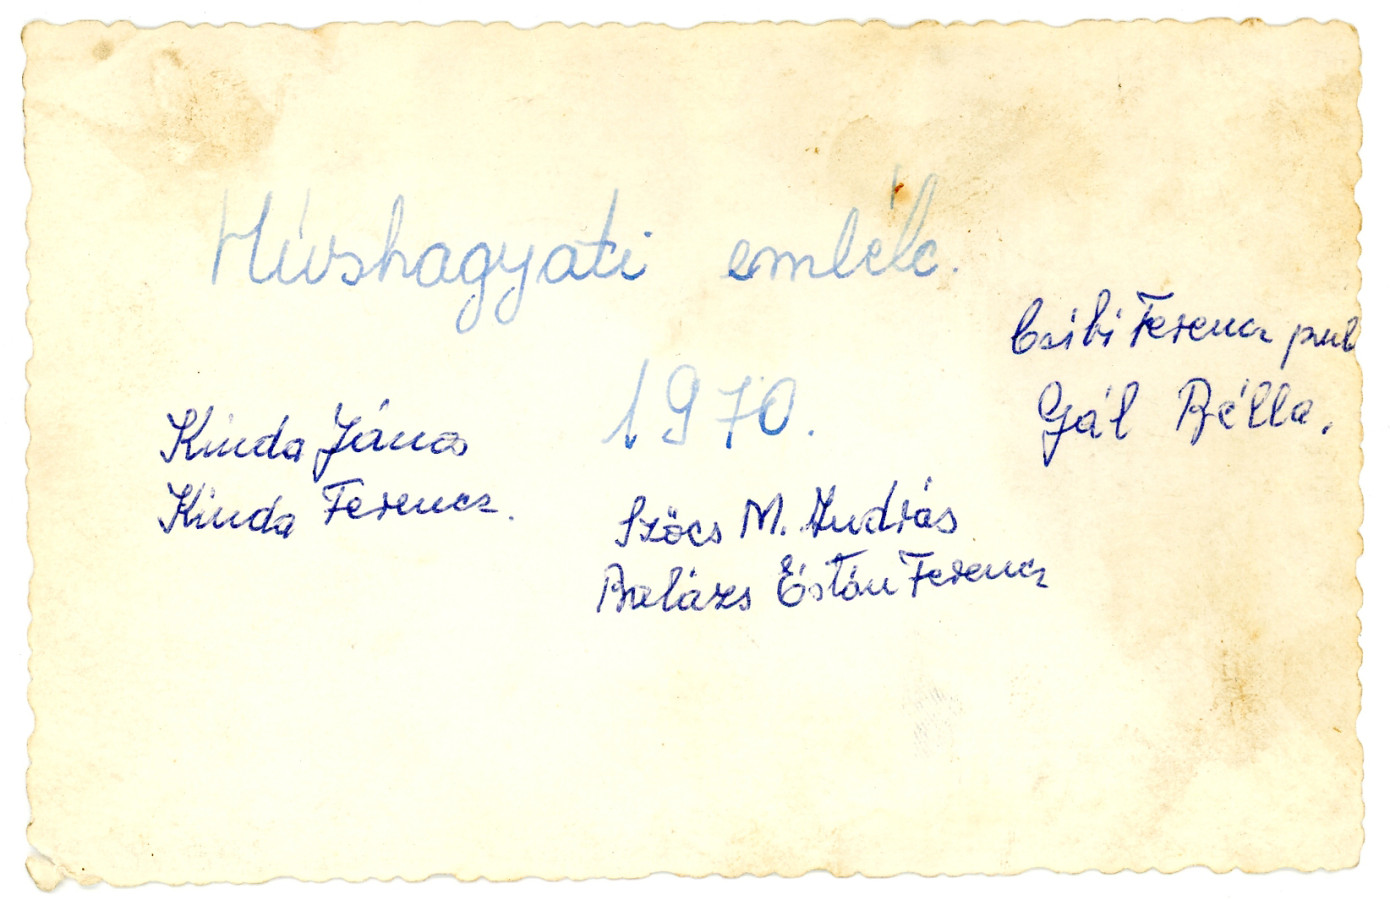 Húshagyati emlék.
1970.
Czibi Ferencz
Gál Bélla.
Kinda János
Kinda Ferencz.
Szőcs M. András
Balázs Ferencz